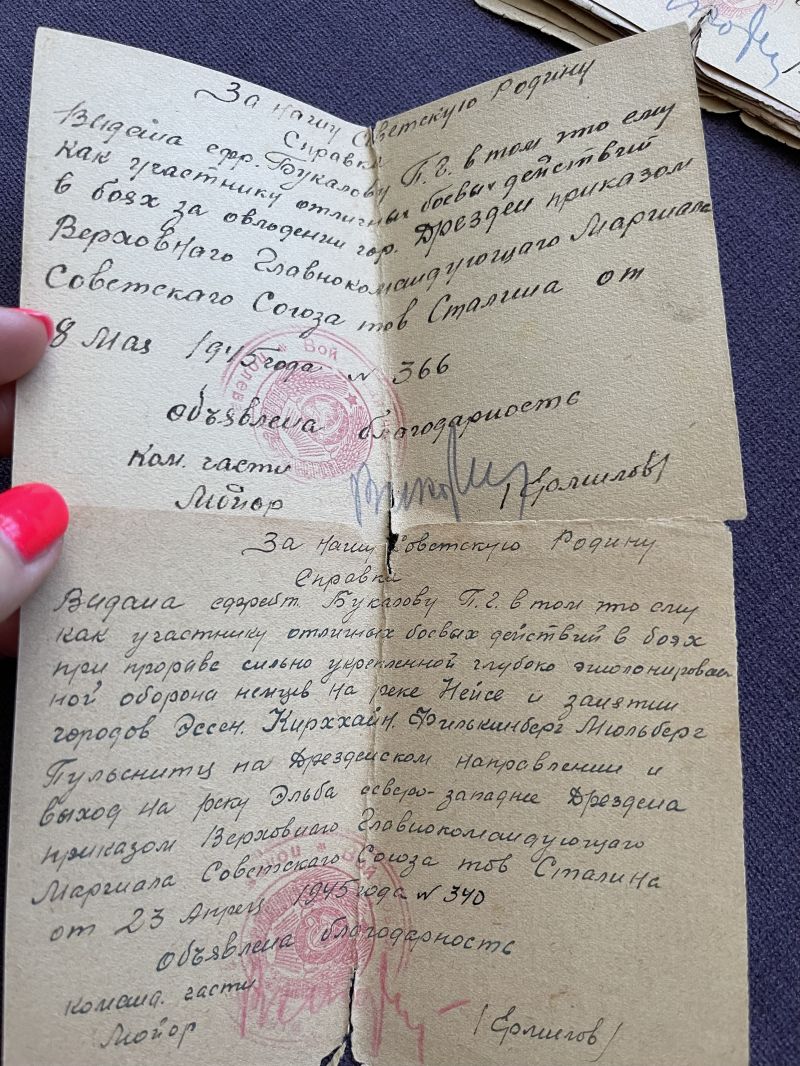 За нашу Советскую Родину
Справка
Видана ефр. Букалову П.Г. в том что ему
как участнику отличных боевых действий
в боях за овлодении гор. Дрезден приказом
Верховнаго Главнокомандующаго Маршала
Советскаго Союза тов Сталина от
8 Мая 1945 года N 366
Объявлена благодарность
Ком. части
Мойор /Ермилов/
Вой
полева
За нашу Советскую Родину
Справка
Видана ефрейт. Букалову П.Г. в том что ему
как участнику отличных боевых действий в боях
при прораве сильно укрепленной глубоко эшолонирован
ной оборона немцев на реке Нейсе и занятии
городов Эссен. Кирххайн. Филькинберг Мюльберг
Пульснитц на Дрезденском направлении и
выход на реку Эльба северо-западнее Дрездена
приказом Верховнаго Главнокомандующаго
Маршала Советскаго Союза тов Сталина
от 23 Апрел 1945 года N 340
Объявлена благодарность
команд. части
Мойор /Ермилов/